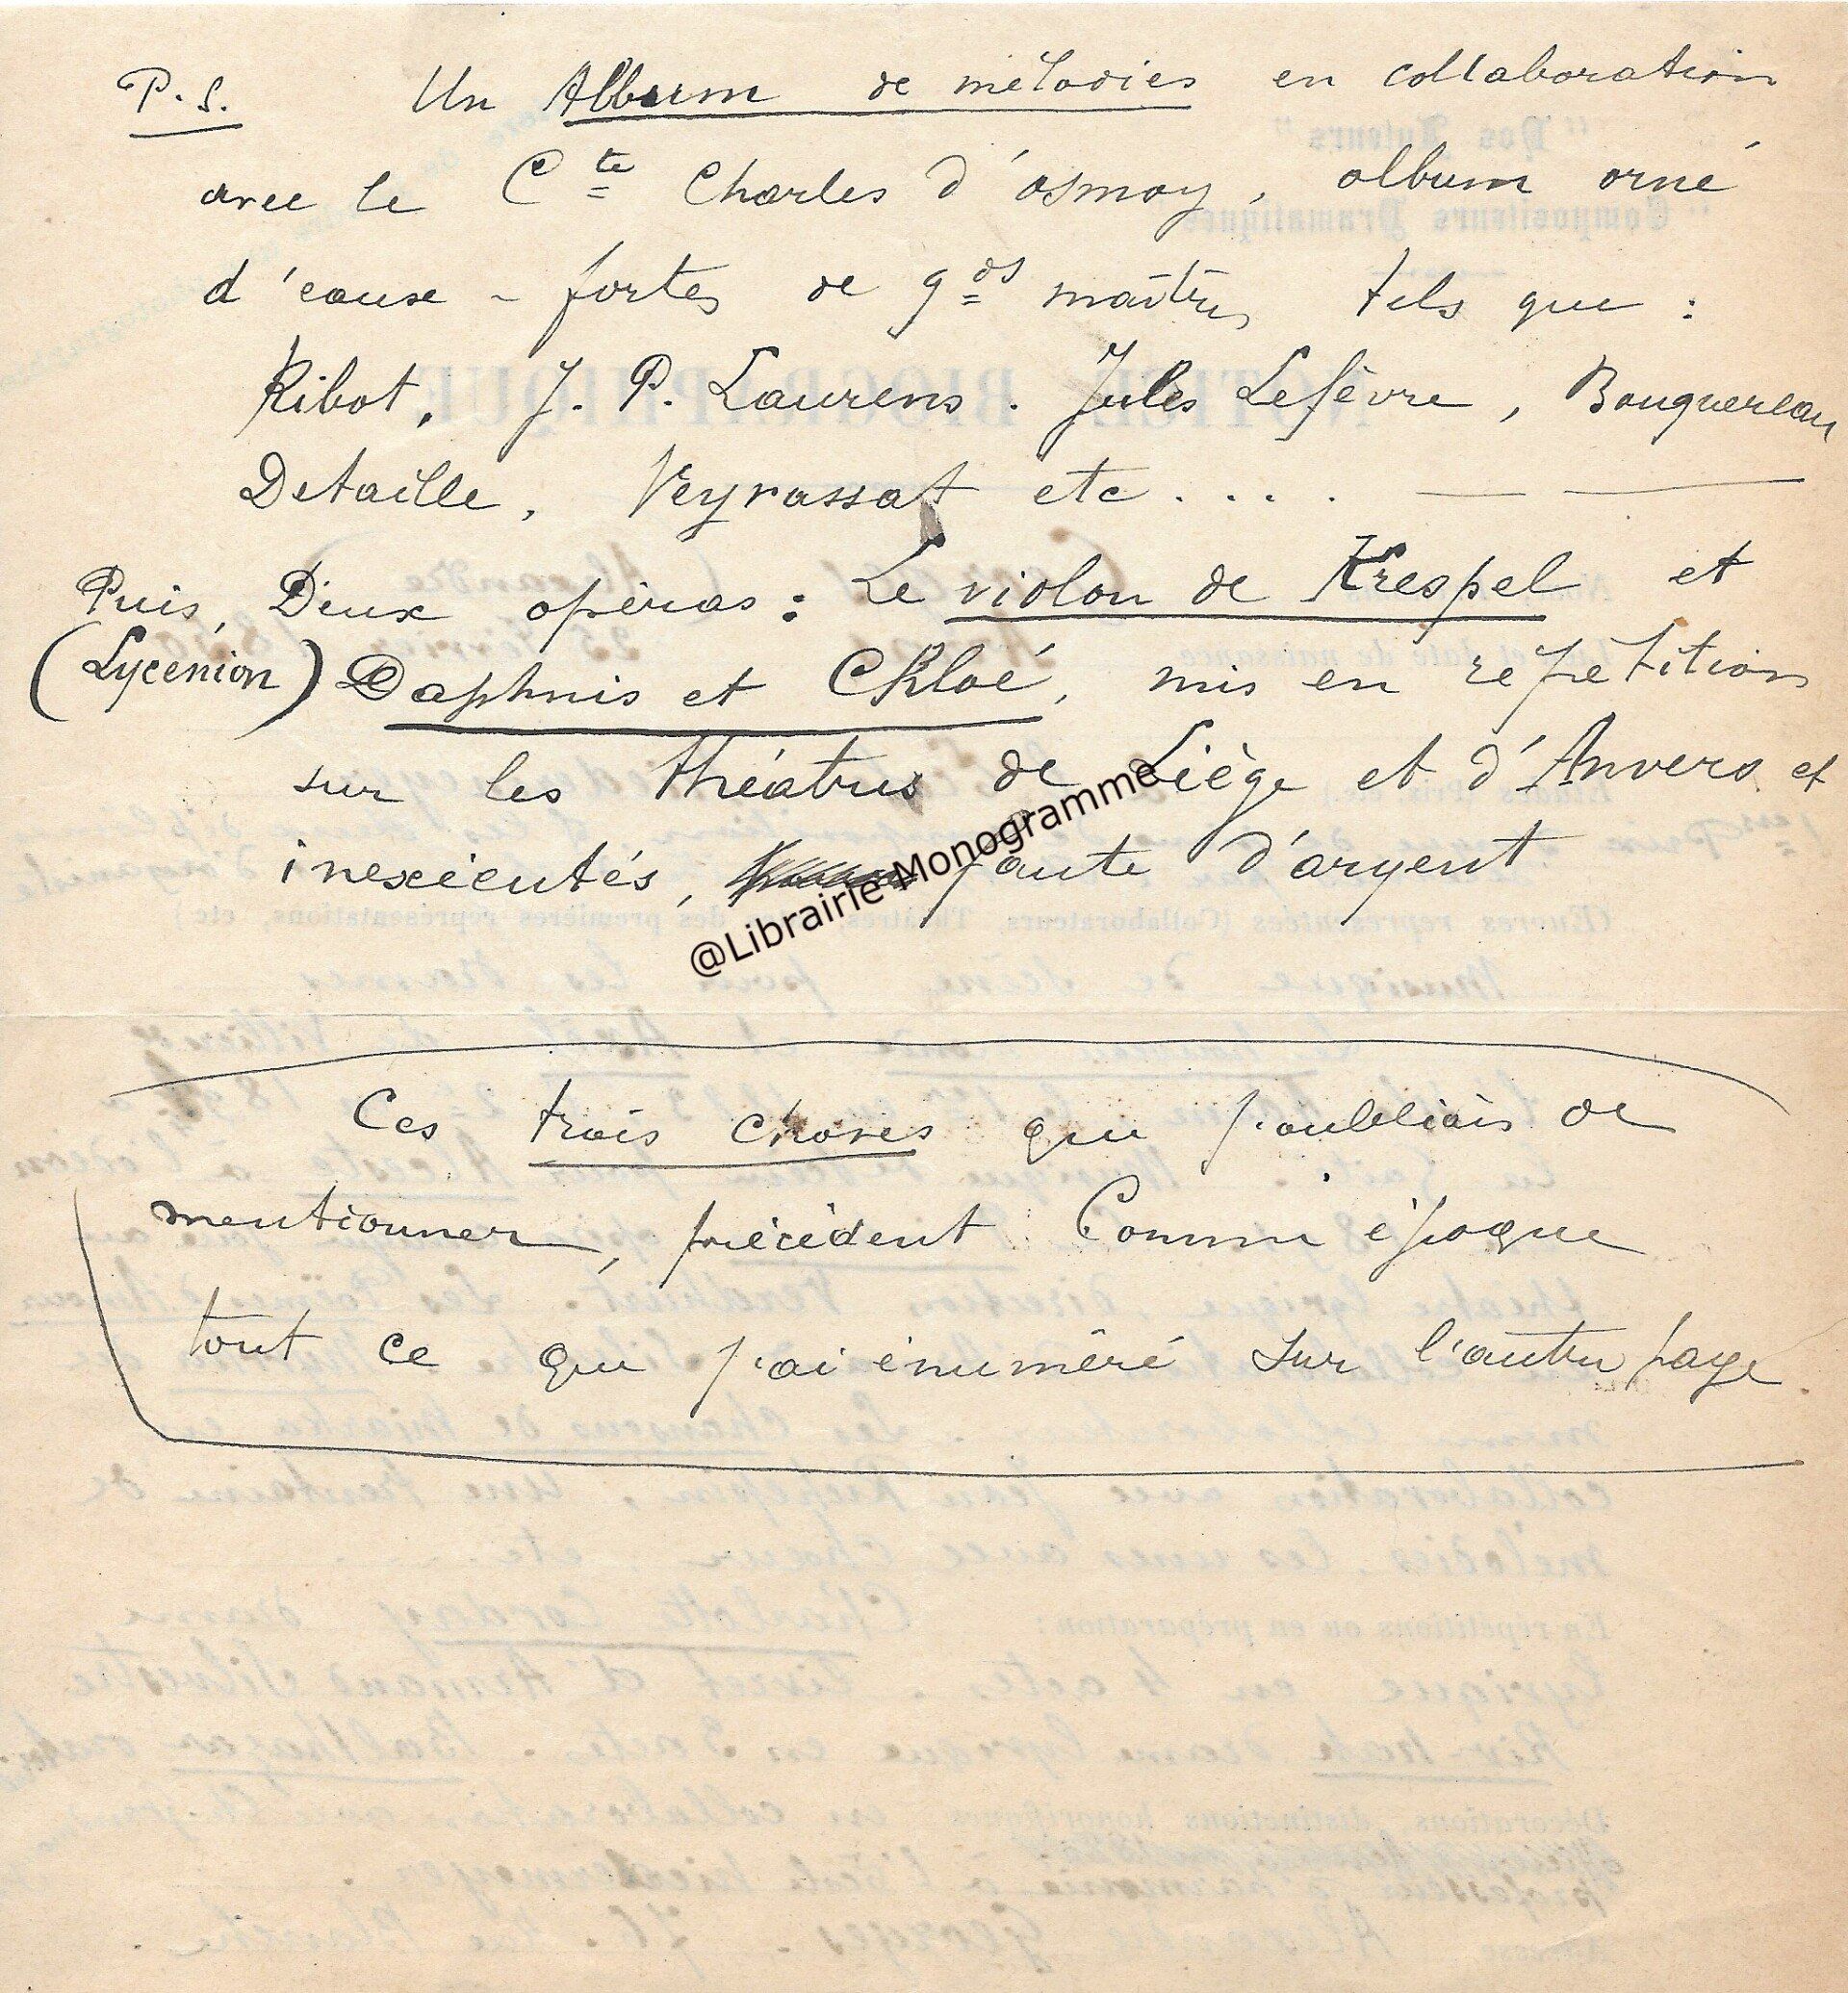 P.S. Un Album de mélodies en collaboration
avec le Cte Charles d'osmoy, album orné
d'eaux-fortes de gds maîtres tels que :
Ribot, J. P. Laurens. Jules Lefèvre, Bouguereau
Detaille, Veyrassat etc....
Puis, Deux opéras : Le violon de Krespel et
(Lycenion) Daphnis et Chloé, mis en répétition
sur les théatres de Liège et d'Anvers et
inexécutés, faute d'argent
@Librairie Monogramme
Ces trois choses que j'oubliais de
mentionner, précèdent Comme époque
tout ce que j'ai énuméré sur l'autre page.